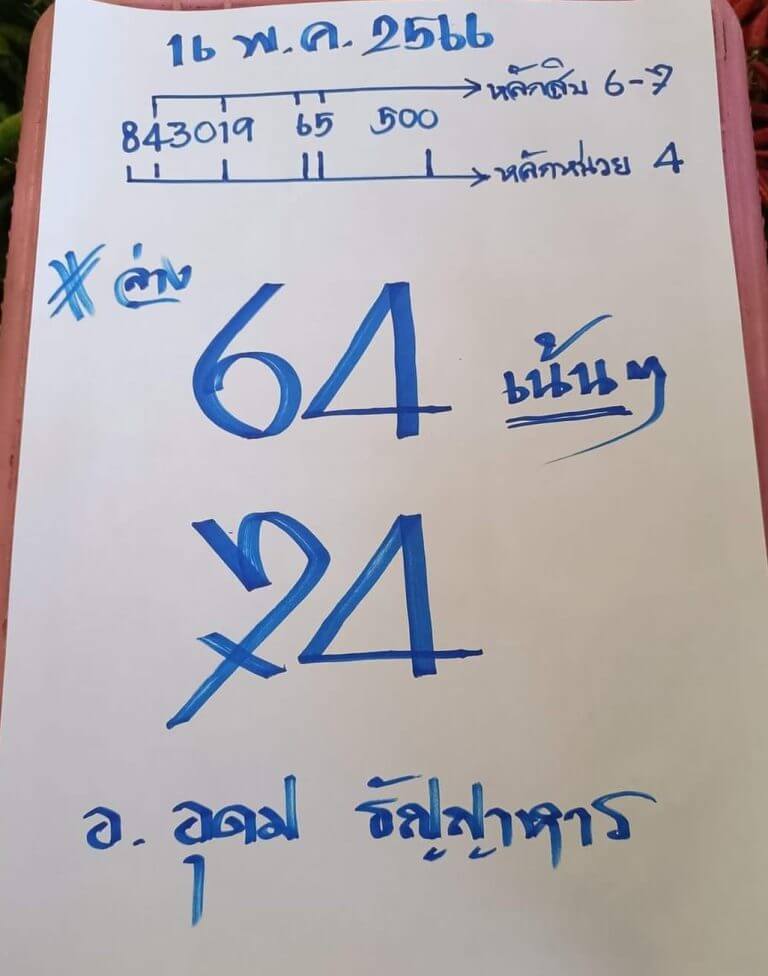 16 พ.ค. 2566
หลักสิบ 6-7
843019 65 500
หลักหน่วย 4
ล่าง 64 เน้นๆ
74
อ. อุดม ธัญญาหาร